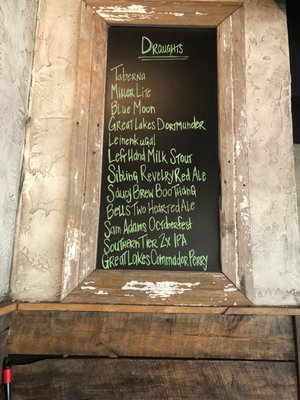 Draughts
Taberna
Miller Lite
Blue Moon
Great Lakes Dortmunder
Leinenkugal
Left Hand Milk Stout
Sibling Revelry Red Ale
Saucy Brew Boo Thang
Bells Two Hearted Ale
Sam Adams Octoberfest
Southern Tier 2x IPA
Great Lakes Commador Perry